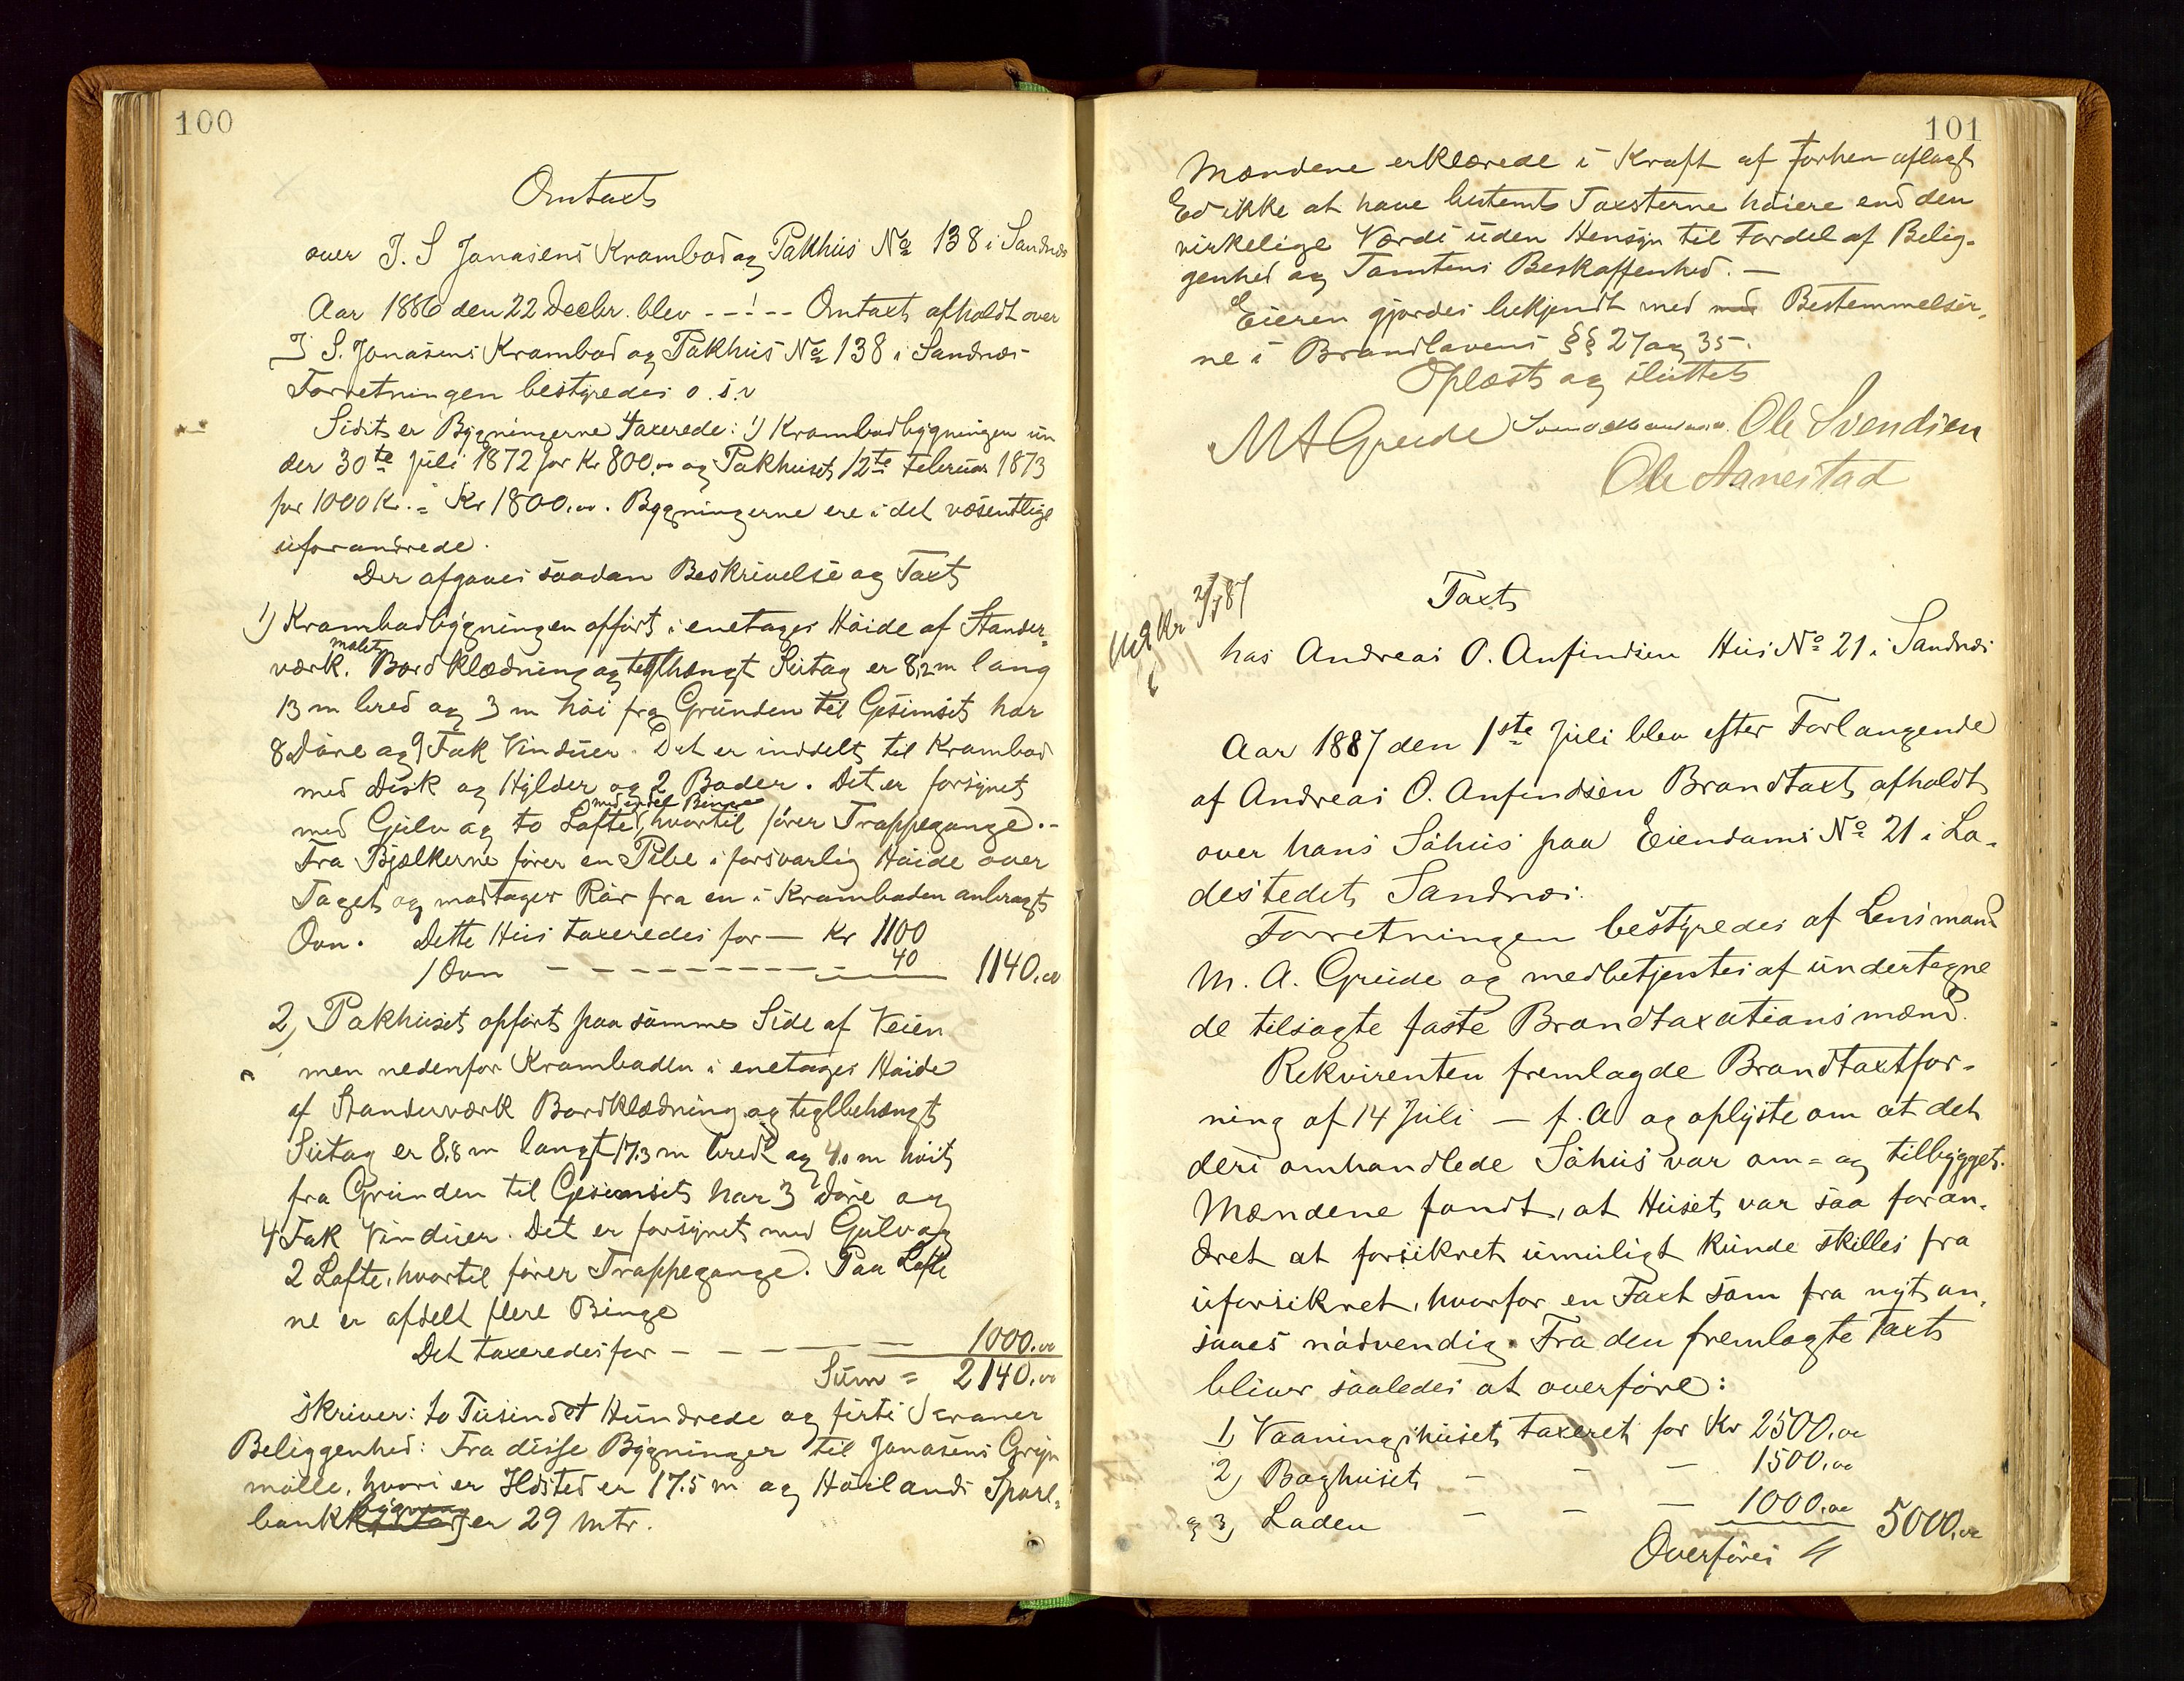 100
Omtaxt
over J. S Jonasens Krambod og Pakhus No 138 i Sandnæs
Aar 1886 den 22 Decbr. blev - - ! - - Omtaxt afholdt over
J S. Jonasens Krambod og Pakhus No 138 i Sandnæs
Forretningen bestyredes o. s. v
Sidst er Bygningerne taxerede: 1) Krambodbygningen un
der 30te Juli 1872 for Kr 800.00 og Pakhuset 12te Februar 1873
for 1000 Kr. = Kr 1800.00. Bygningerne ere i det væsentlige
uforandrede.
Der afgaves saadan Beskrivelse og Taxt
1) Krambodbygningen opført i enetages Høide af Stander-
malet
værk. Bordklædning og teglhængt Sutag er 8,2 m lang
13 m bred og 3 m høi fra Grunden til Gesimset har
8 Døre og 9 Fak Vinduer. Det er inddelt til Krambod
med Disk og Hylder og 2 Boder. Det er forsynet
med endel Binge
med Gulv og to Lofte, hvortil fører Trappegange. -
Fra Bjælkerne fører en Pibe i forsvarlig Høide over
Taget og modtager Rør fra en i Kramboden anbragt
Ovn. Dette Hus taxeredes for — Kr 1100
1 Ovn - - - - - - - - - 40 1140.00
2) Pakhuset opført paa samme Side af Veien
men nedenfor Kramboden i enetages Høide
af Standerværk Bordklædning og teglbehængt
Sutag er 8,8 m langt 17,3 m bredt og 4,0 m høit
fra Grunden til Gesimset har 3 Døre og
4 Fak Vinduer. Det er forsynet med Gulv og
2 Lofte, hvortil fører Trappegange. Paa Lofte
ne er afdelt flere Binge
Det taxeredes for - - - - - 1000.00
Sum = 2140.00
skriver: to Tusindet Hundrede og førti Kroner
Beliggenhed: Fra disse Bygninger til Jonasens Gryn
mølle, hvori er Ildsted er 17.5 m og Høilands Spare-
bank er 29 Mtr.
101
Mændene erklærede i Kraft af forhen aflagt
Ed ikke at have bestemt Taxsterne høiere end den
virkelige Værdi uden Hensyn til Fordel af Belig-
genhed og Tomtens Beskaffenhed. —
Eieren gjordes bekjendt med med Bestemmelser-
ne i Brandlovens §§ 27 og 35.
Oplæst og sluttet
M A Grude Ole Svendsen
Ole Aanestad
2/7 87
Taxt
hos Andreas O. Anfindsen Hus No 21 i Sandnæs
Aar 1887 den 1ste Juli blev efter Forlangende
af Andreas O. Anfindsen Brandtaxt afholdt
over hans Søhus paa Eiendoms No 21 i La-
destedet Sandnæs.
Forretningen bestyredes af Lensmand
M. A. Grude og medbetjentes af undertegne
de tilsagte faste Brandtaxationsmænd.
Rekvirenten fremlagde Brandtaxtfor-
ning af 14 Juli — f. A og oplyste om at det
deri omhandlede Søhus var om- og tilbygget.
Mændene fandt, at Huset var saa foran-
dret at forsikret umuligt kunde skilles fra
uforsikret, hvorfor en Taxt som fra nyt an-
saaes nødvendig. Fra den fremlagte Taxt
bliver saaledes at overføre:
1) Vaaningshuset taxeret for Kr 2500.00
2) Baghuset - - - 1500.00
og 3) Laden - - - 1000.00 5000.00
Overføres